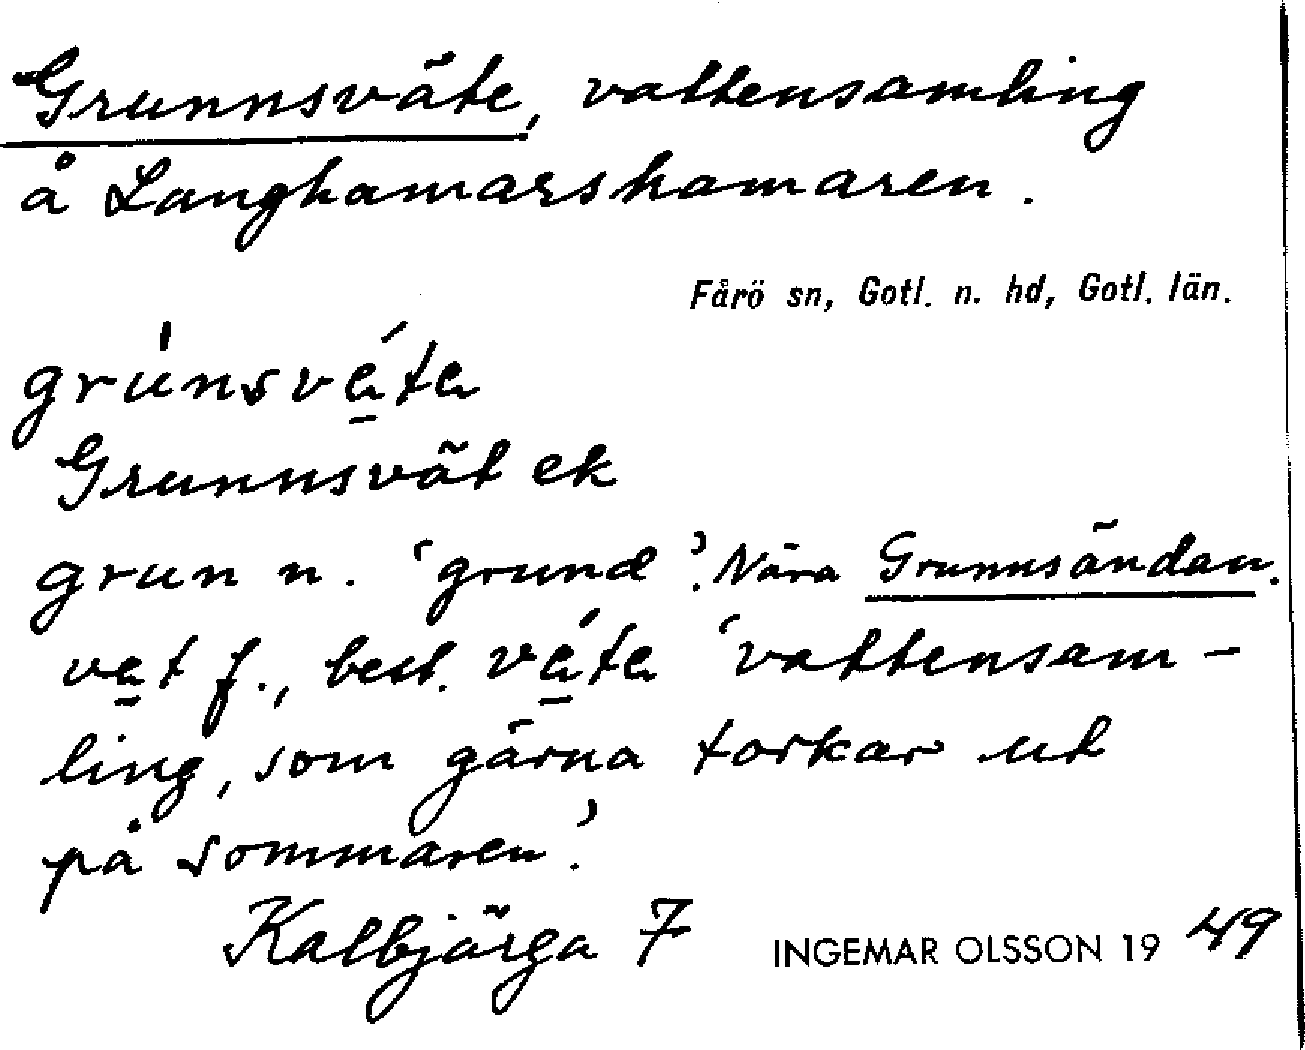 Grunnsväte, vattensamling
å Langhamarshamaren.
Fårö sn, Gotl. n. hd, Gotl. län.
grúnsvéta
Grunnsvät ek
grun n. ‘grund’. Nära Grunnsändan.
vet f., best. véta ‘vattensam-
ling, som gärna torkar ut
på sommaren’.
Kalbjärga 7 INGEMAR OLSSON 19 49